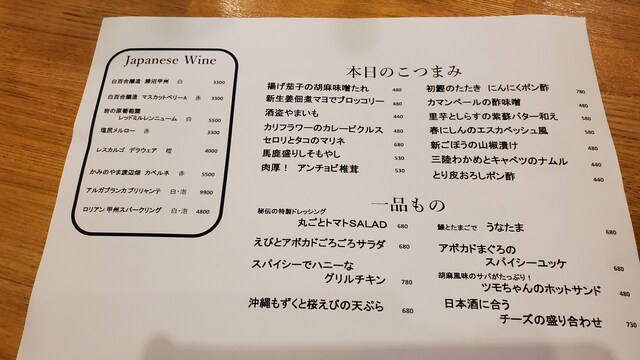 Japanese Wine
白百合醸造 勝沼甲州 白 3300
白百合醸造 マスカットベリーA 赤 3300
岩の原葡萄園
レッドミルレンニューム 白 5500
塩尻メルロー 赤 3300
レスカルゴ デラウェア 橙 4000
かみのやま渡辺畑 カベルネ 赤 5500
アルガブランカブリリャンテ 白・泡 9900
ロリアン甲州スパークリング 白・泡 4800
本日のこつまみ
揚げ茄子の胡麻味噌たれ 480
新生姜佃煮マヨでブロッコリー 480
酒盗やまいも 440
カリフラワーのカレーピクルス 480
セロリとタコのマリネ 680
馬鹿盛りしそもやし 530
肉厚! アンチョビ椎茸 530
初鰹のたたき にんにくポン酢 780
カマンベールの酢味噌 480
里芋としらすの紫蘇バター和え 580
春にしんのエスカベッシュ風 580
新ごぼうの山椒漬け 440
三陸わかめとキャベツのナムル 440
とり皮おろしポン酢 440
一品もの
秘伝の特製ドレッシング
丸ごとトマトSALAD 680
えびとアボカドごろごろサラダ 680
スパイシーでハニーな
グリルチキン 780
沖縄もずくと桜えびの天ぷら 680
鰻とたまごで うなたま 680
アボカドまぐろの
スパイシーユッケ 680
胡麻風味のサバがたっぷり!
ツモちゃんのホットサンド 480
日本酒に合う
チーズの盛り合わせ 730